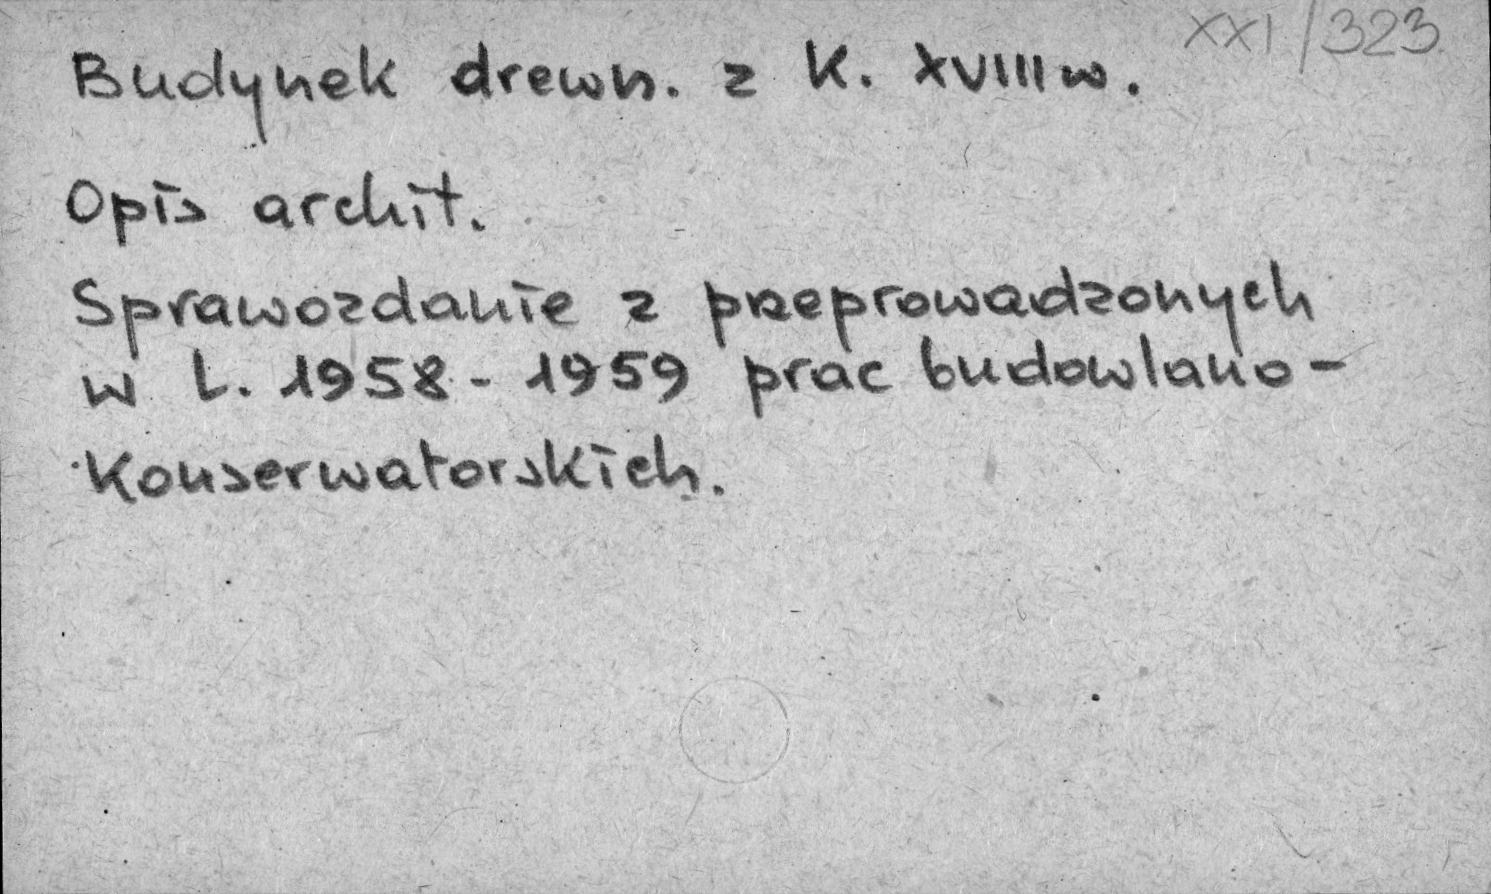 XXI/323
Budynek drewn. z K. XVIII w.
Opis archit.
Sprawozdanie z przeprowadzonych
w L. 1958 - 1959 prac budowlano-
Konserwatorskich.